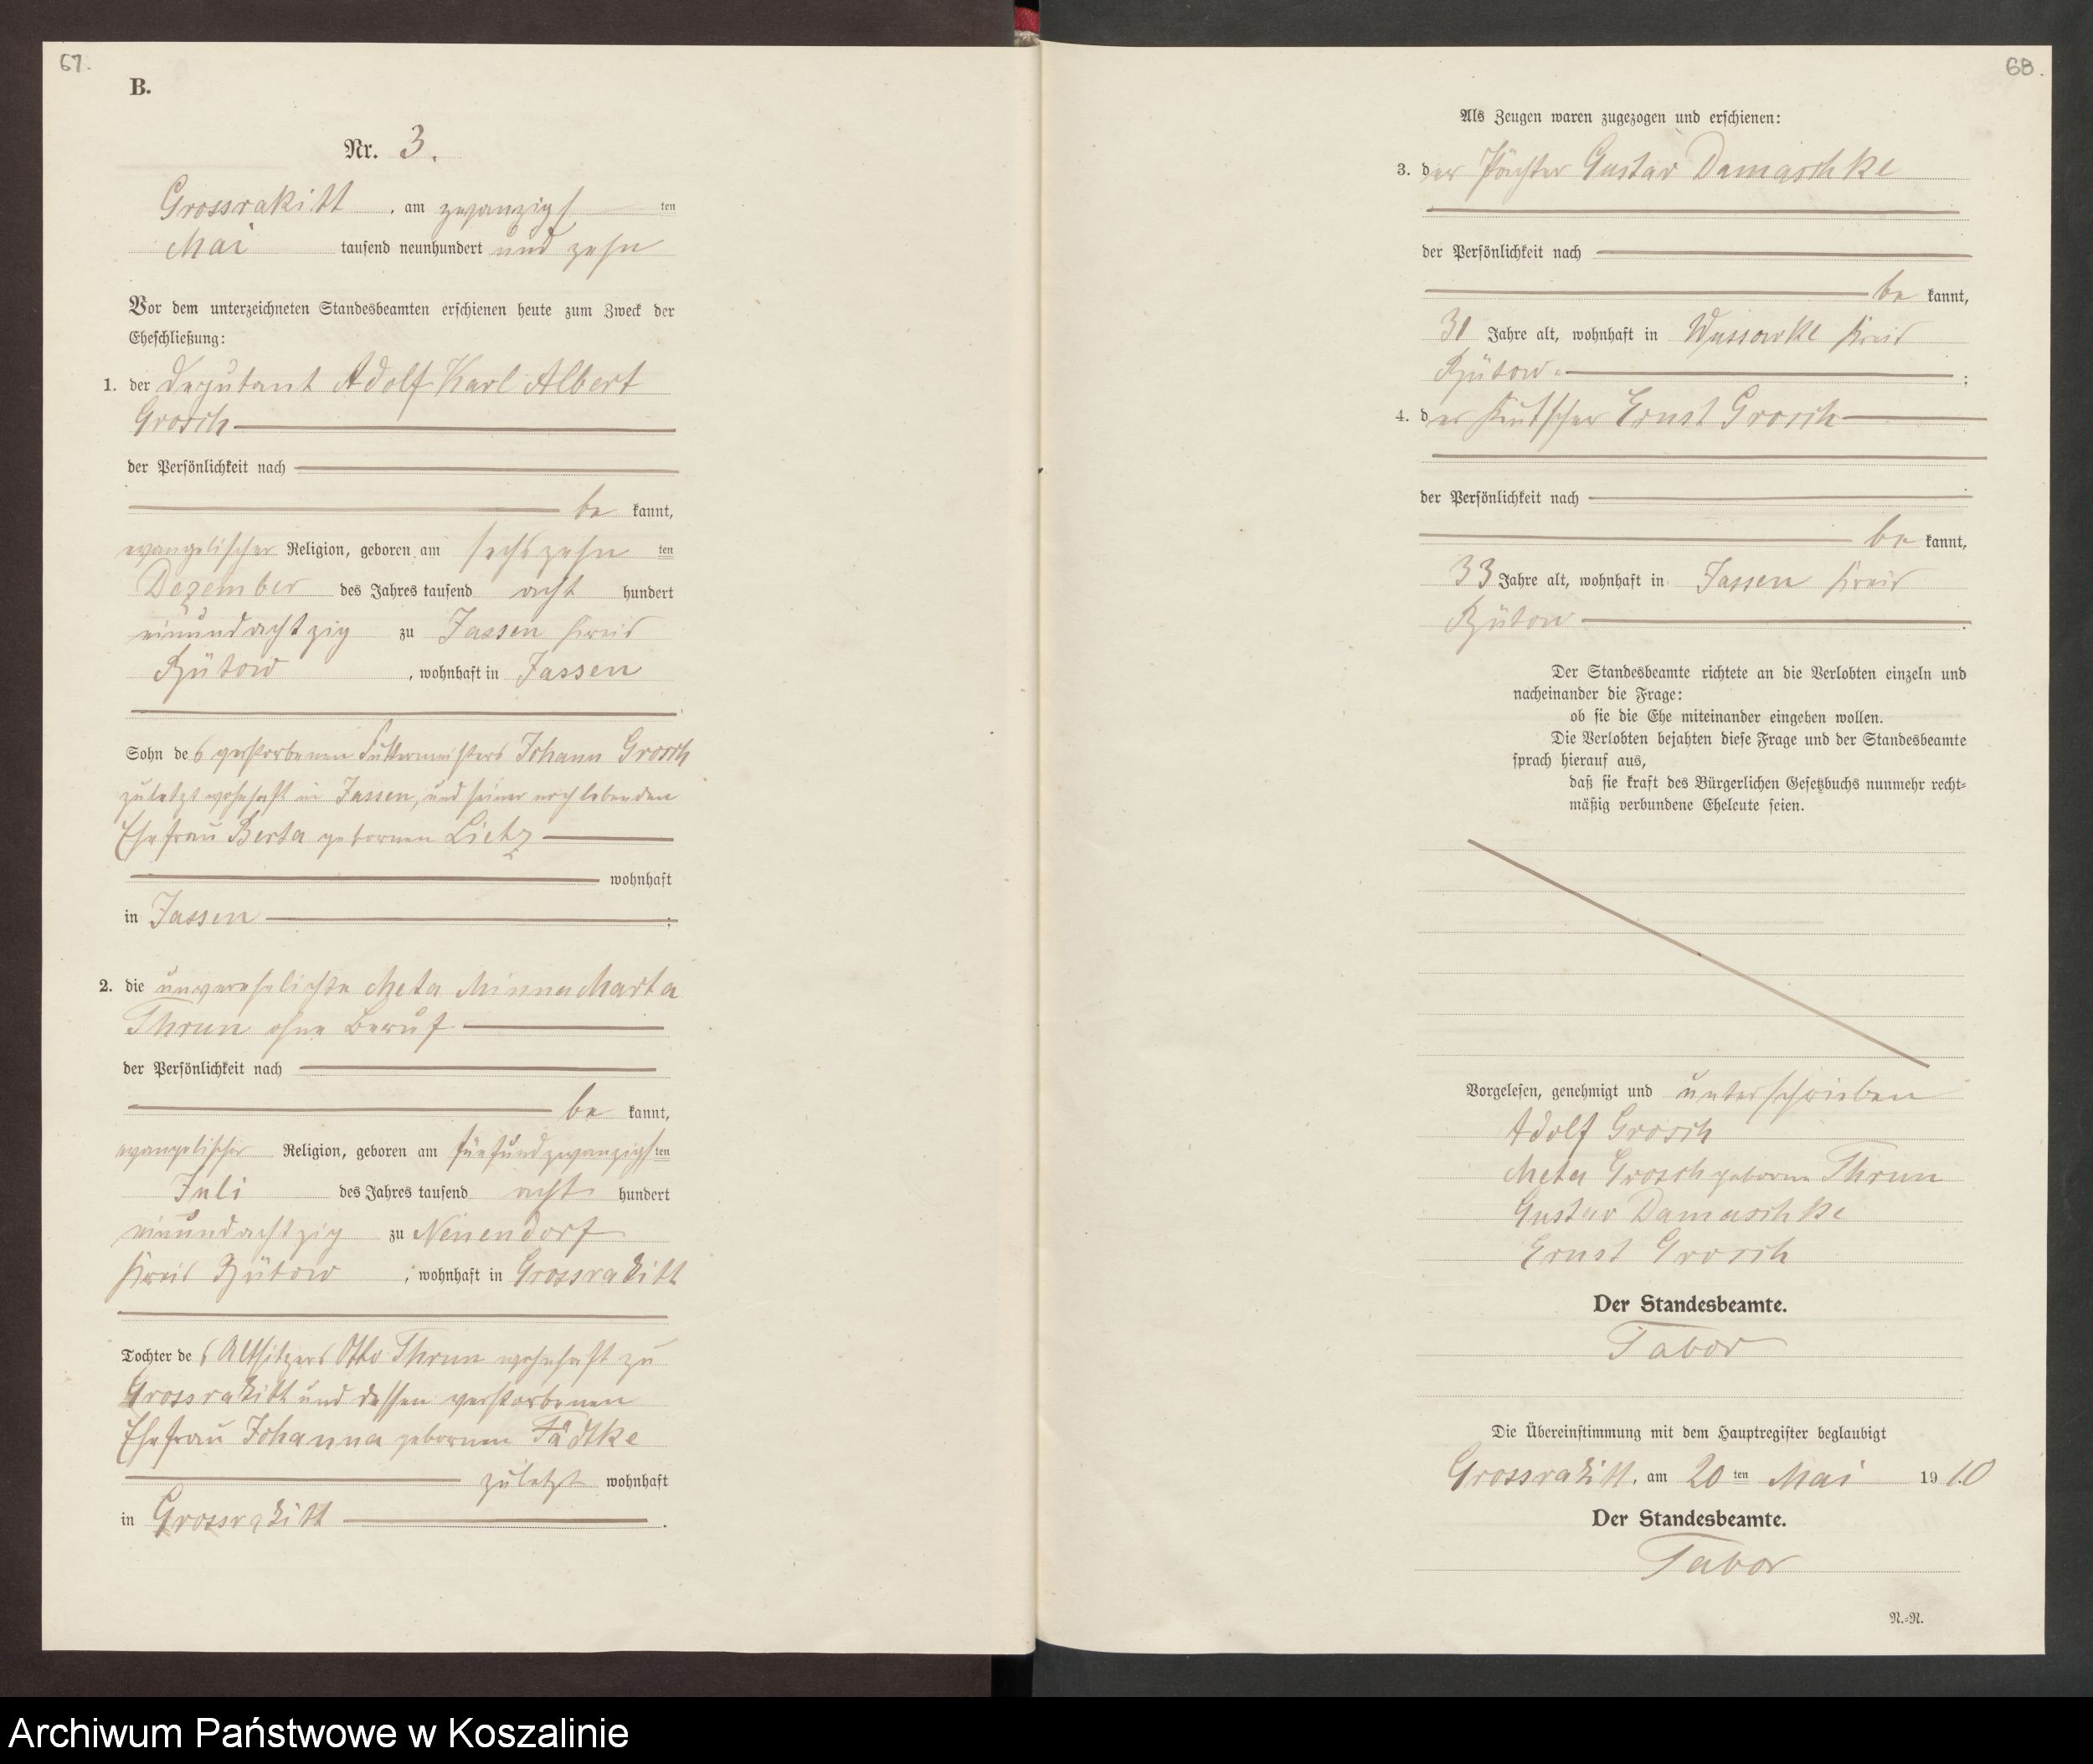 67.
B.
Nr. 3.
Grossrakitt, am zwanzigsten
Mai tausend neunhundert und zehn
Vor dem unterzeichneten Standesbeamten erschienen heute zum Zweck der
Eheschließung:
1. der Deputant Adolf Karl Albert
Grosch
der Persönlichkeit nach
be kannt,
evangelischer Religion, geboren am sechszehn ten
Dezember des Jahres tausend acht hundert
einundachtzig zu Jassen Kreis
Bütow, wohnhaft in Jassen
Sohn des verstorbenen Futtermeisters Johann Grosch
zuletzt wohnhaft in Jassen, und seiner noch lebenden
Ehefrau Berta gebornen Lietz
wohnhaft
in Jassen;
2. die unverehelichte Meta Minna Marta
Thrun ohne Beruf
der Persönlichkeit nach
be kannt,
evangelischer Religion, geboren am fünfundzwanzigsten
Juli des Jahres tausend acht hundert
einundachtzig zu Neuendorf
Kreis Bütow, wohnhaft in Grossrakitt
Tochter des Altsitzers Otto Thrun wohnhaft zu
Grossrakitt und dessen verstorbenen
Ehefrau Johanna gebornen Fädtke
zuletzt wohnhaft
in Grossrakitt.
68.
Als Zeugen waren zugezogen und erschienen:
3. der Pächter Gustav Damaschke
der Persönlichkeit nach
be kannt,
31 Jahre alt, wohnhaft in Wussowke Kreis
Bütow;
4. der Kutscher Ernst Grosch
der Persönlichkeit nach
be kannt,
33 Jahre alt, wohnhaft in Jassen Kreis
Bütow.
Der Standesbeamte richtete an die Verlobten einzeln und
nacheinander die Frage:
ob sie die Ehe miteinander eingehen wollen.
Die Verlobten bejahten diese Frage und der Standesbeamte
sprach hierauf aus,
daß sie kraft des Bürgerlichen Gesetzbuchs nunmehr recht-
mäßig verbundene Eheleute seien.
Vorgelesen, genehmigt und unterschrieben
Adolf Grosch
Meta Grosch geborne Thrun
Gustav Damaschke
Ernst Grosch
Der Standesbeamte.
Tabor
Die Übereinstimmung mit dem Hauptregister beglaubigt
Grossrakitt, am 20 ten Mai 1910
Der Standesbeamte.
Tabor
N.-N.
Archiwum Państwowe w Koszalinie